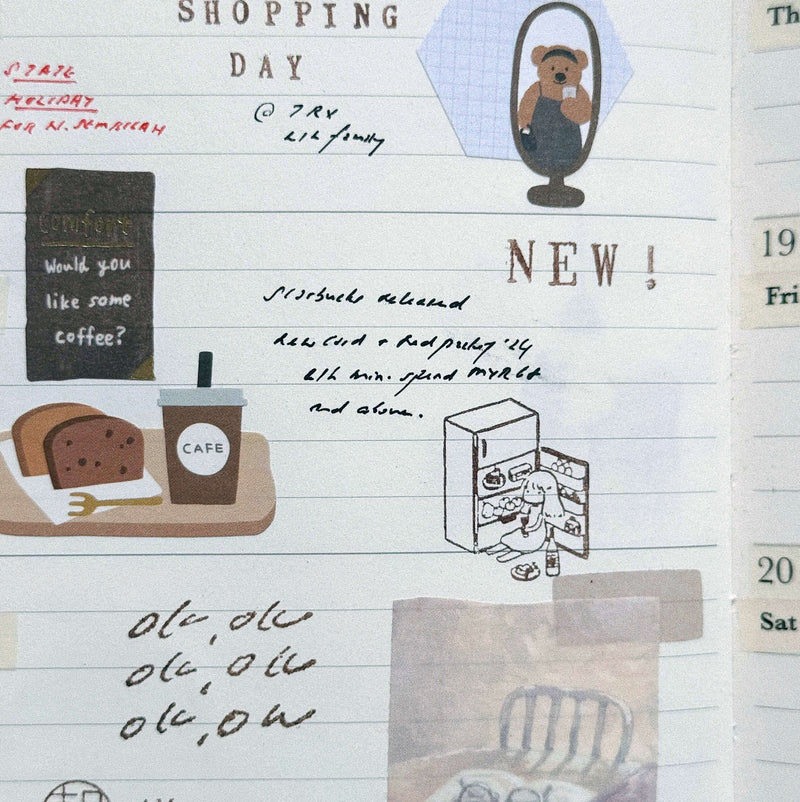 SHOPPING
DAY
STATE
HOLIDAY
FOR N. SEMBILAN
@ TRX
family
comforts
Would you
like some
coffee?
NEW!
Starbucks released
new card + Red packet '24
min. spend MYR68
and above.
CAFE
ok, ok
ok, ok
ok, ok
Th
19
Fri
20
Sat